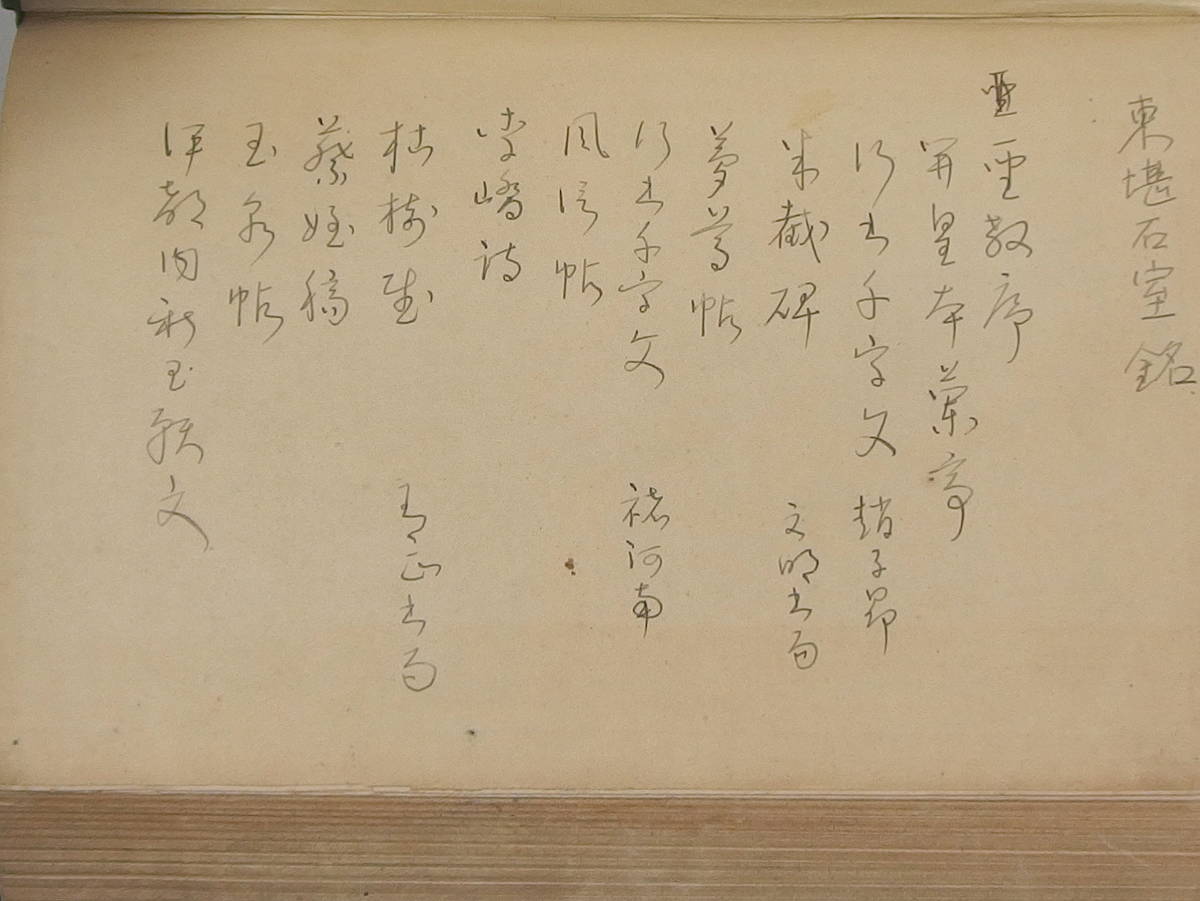 東堪石室銘
聖教序
開皇本蘭亭
行書千字文 趙子昂
半截碑 文明書局
夢奠帖
行書千字文 褚河南
風信帖
李嶠詩
枯樹賦 有正書局
祭姪稿
玉泉帖
伊都内親王願文